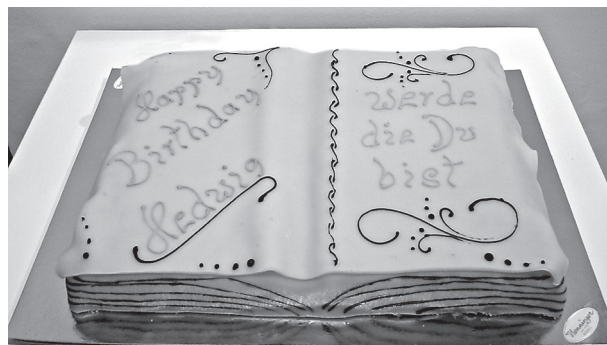 Happy
Birthday
Hedwig
werde
die Du
bist